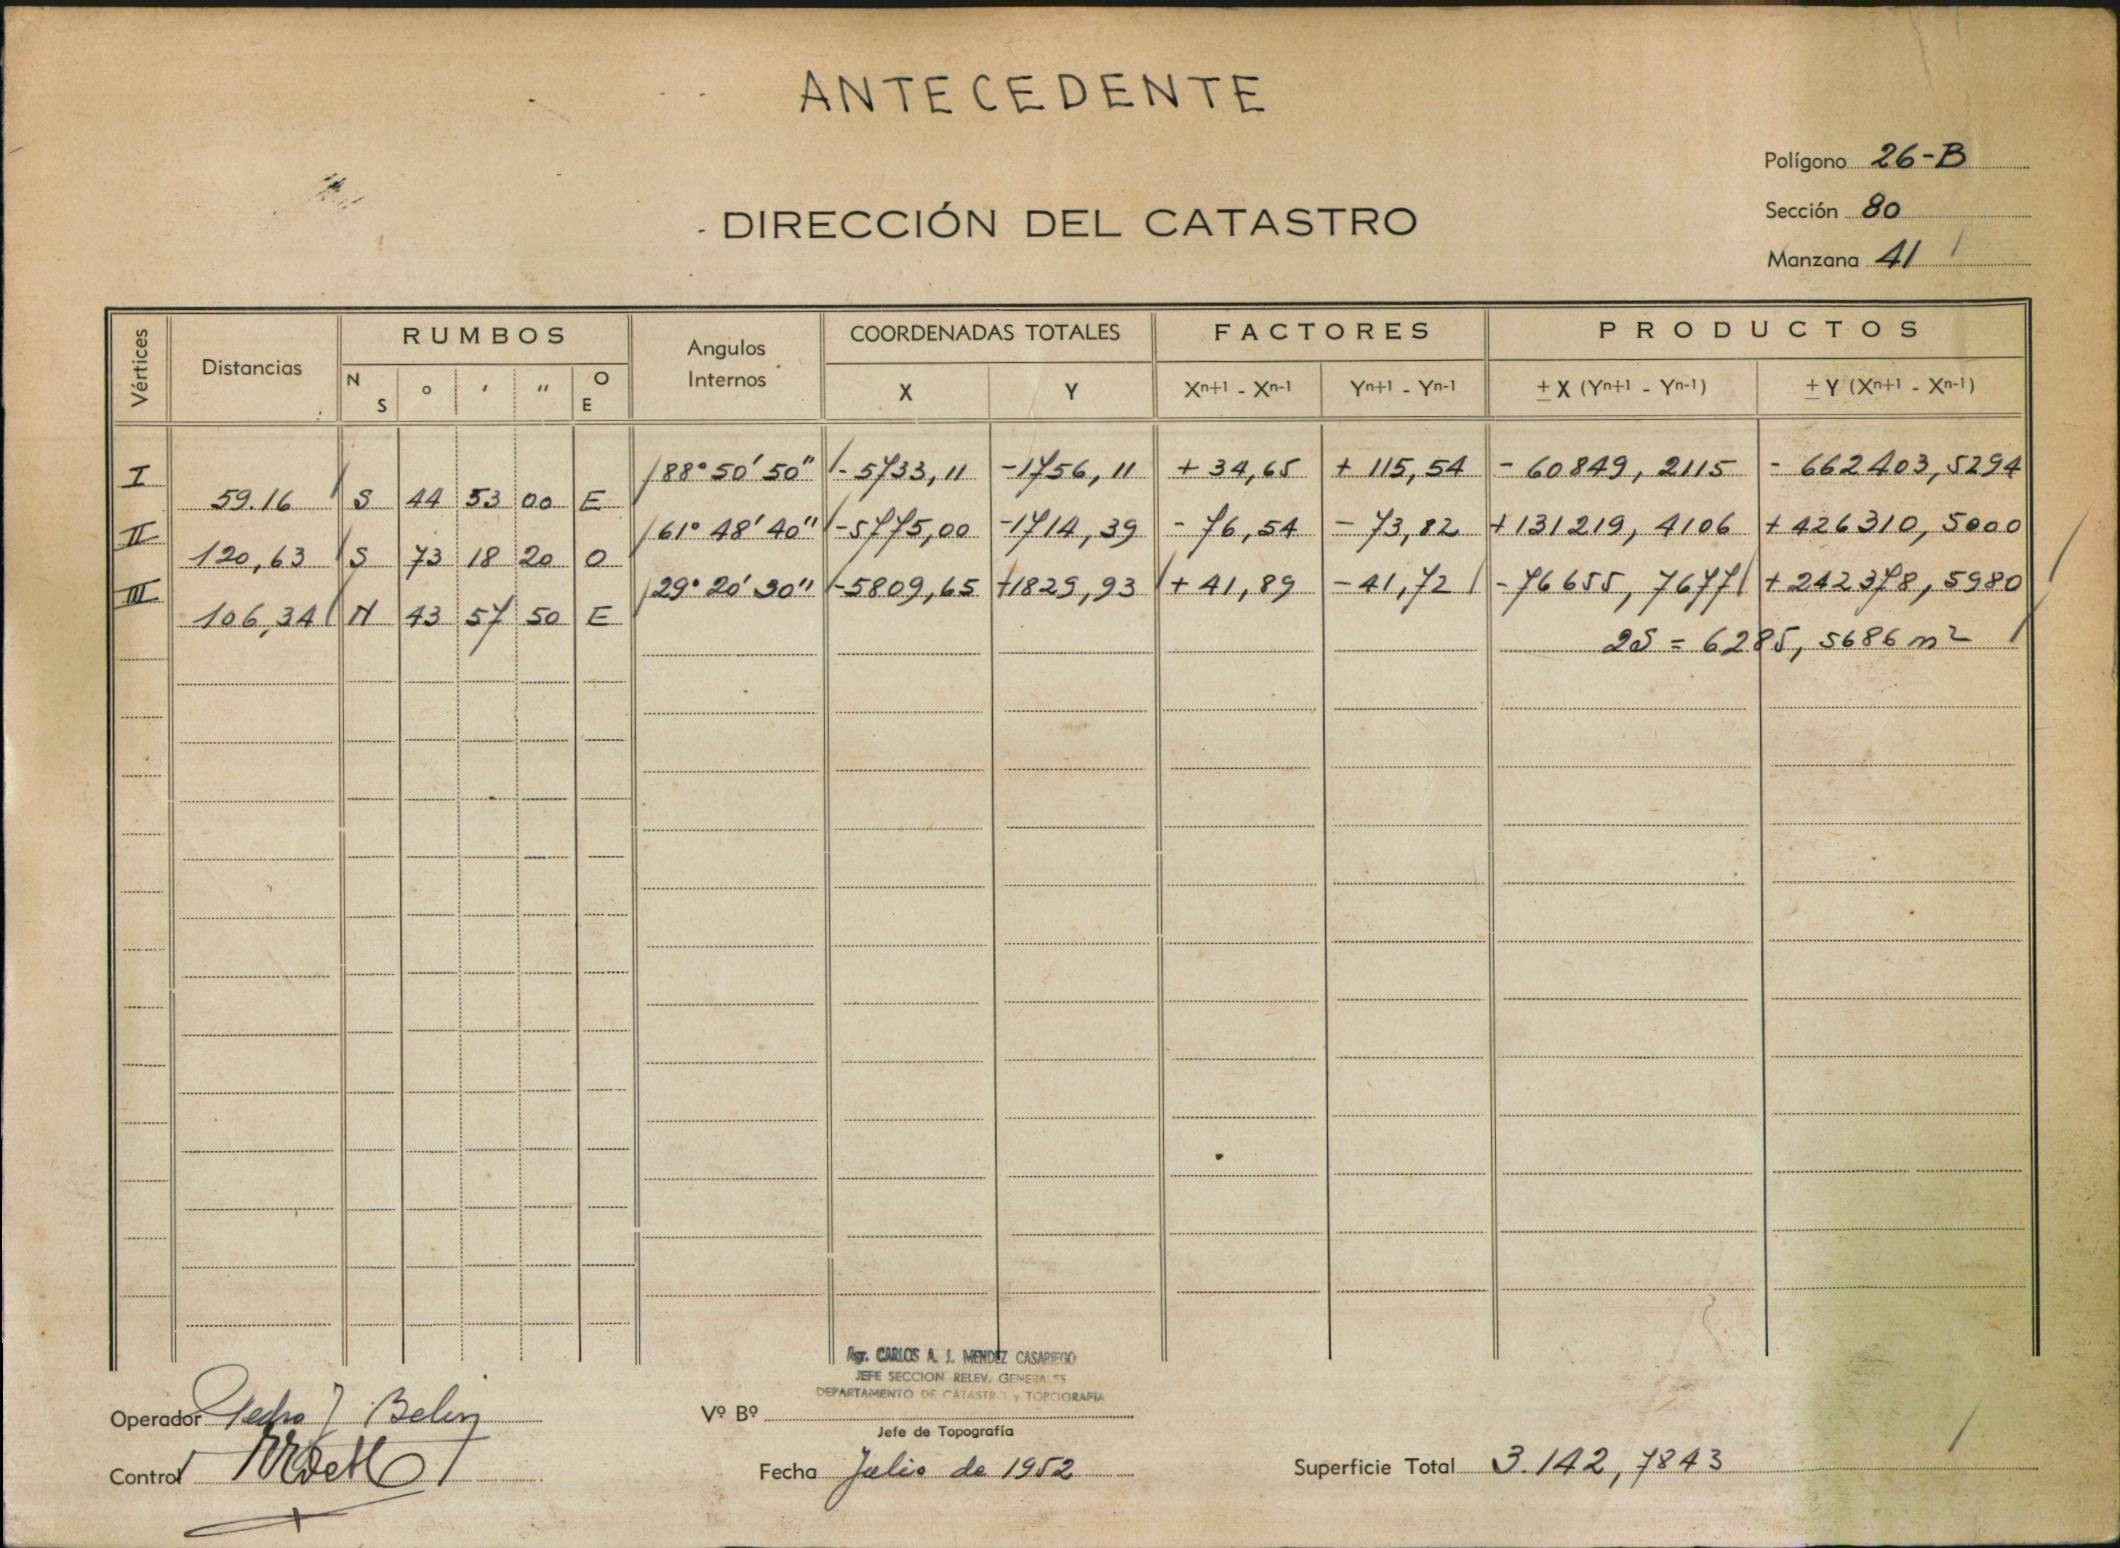 ANTECEDENTE
Polígono 26-B
DIRECCIÓN DEL CATASTRO
Sección 80
Manzana 41
Vértices Distancias RUMBOS Angulos Internos COORDENADAS TOTALES FACTORES PRODUCTOS
N S ° ' " O E X Y Xn+1 - Xn-1 Yn+1 - Yn-1 ± X (Yn+1 - Yn-1) ± Y (Xn+1 - Xn-1)
I 88° 50' 50" -5733,11 -1756,11 +34,65 +115,54 -60849,2115 -662403,5294
59.16 S 44 53 00 E
II 61° 48' 40" -5775,00 -1714,39 -76,54 -73,82 +131219,4106 +426310,5000
120,63 S 73 18 20 O
III 29° 20' 30" -5809,65 +1829,93 +41,89 -41,72 -76655,7677 +242378,5980
106,34 N 43 57 50 E
2S = 6285,5686 m2
Agr. CARLOS A. J. MENDEZ CASARIEGO
JEFE SECCION RELEV. GENERALES
DEPARTAMENTO DE CATASTRO y TOPOGRAFIA
Operador Pedro J Belin
Vº Bº
Jefe de Topografía
Control
Fecha Julio de 1952
Superficie Total 3.142,7843